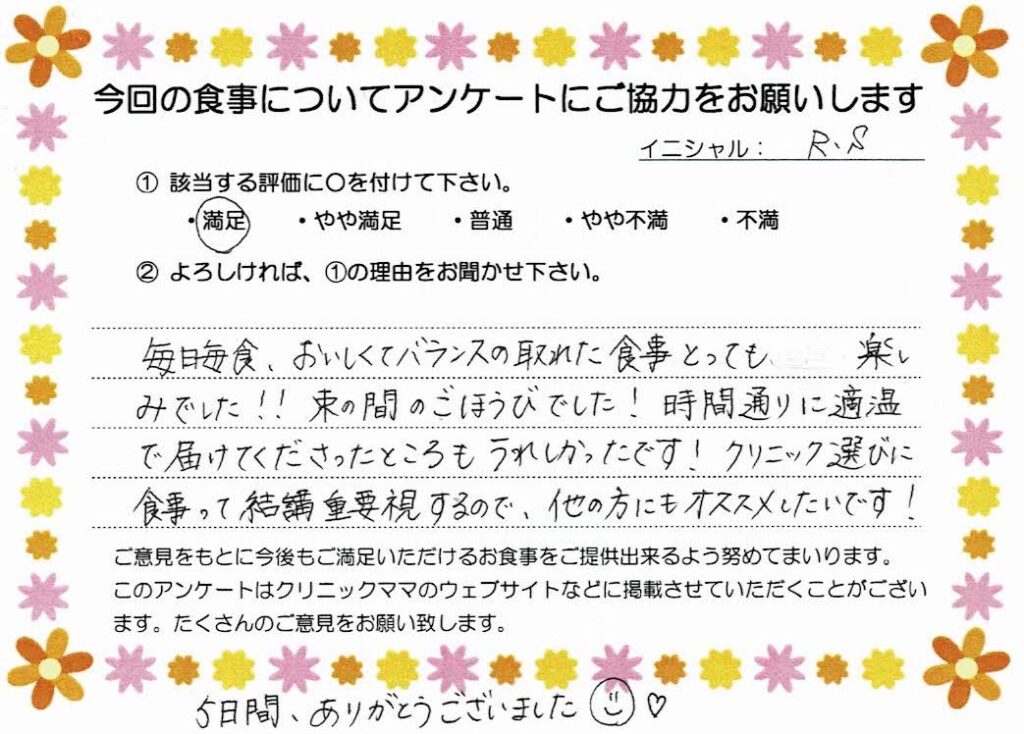 今回の食事についてアンケートにご協力をお願いします
イニシャル： R.S
① 該当する評価に〇を付けて下さい。
・満足 ・やや満足 ・普通 ・やや不満 ・不満
② よろしければ、①の理由をお聞かせ下さい。
毎日毎食、おいしくてバランスの取れた食事とっても 楽し
みでした!! 束の間のごほうびでした! 時間通りに適温
で届けてくださったところもうれしかったです! クリニック選びに
食事って結構重要視するので、他の方にもオススメしたいです!
ご意見をもとに今後もご満足いただけるお食事をご提供出来るよう努めてまいります。
このアンケートはクリニックママのウェブサイトなどに掲載させていただくことがござい
ます。たくさんのご意見をお願い致します。
5日間、ありがとうございました ☺♡